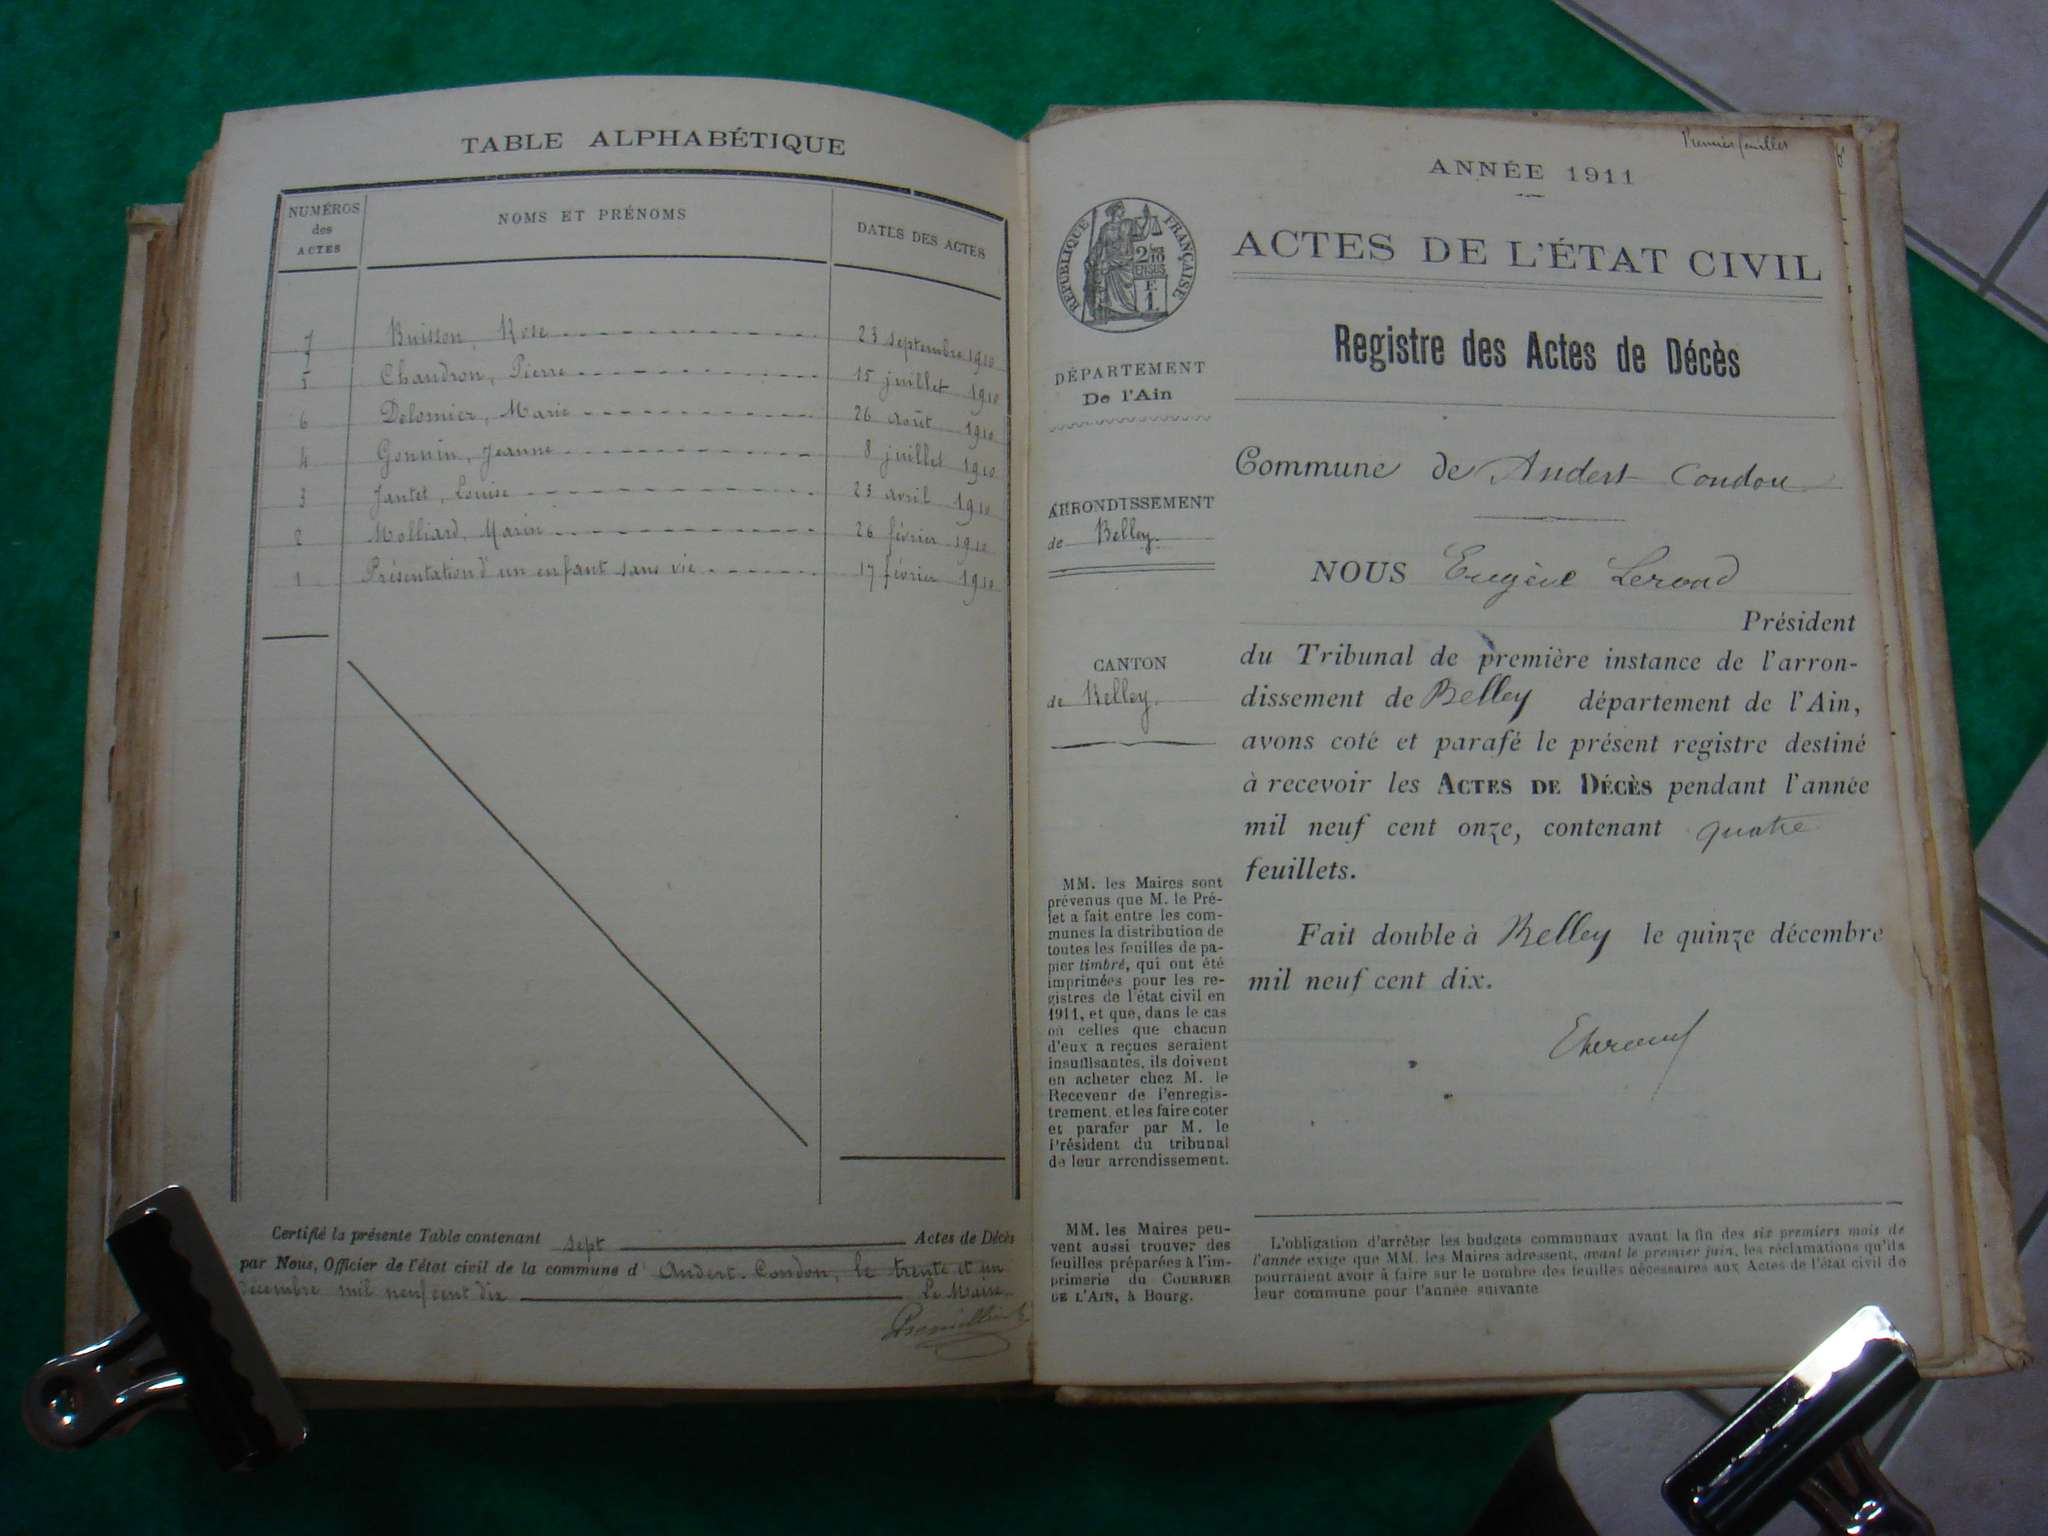 TABLE ALPHABÉTIQUE
NUMÉROS des ACTES NOMS ET PRÉNOMS DATES DES ACTES
7 Buisson, Rose 23 septembre 1910
5 Chaudron, Pierre 15 juillet 1910
6 Delomier, Marie 26 août 1910
4 Gonnin, Jeanne 8 juillet 1910
3 Jantet, Louise 23 avril 1910
2 Molliard, Marin 26 février 1910
1 Présentation d'un enfant sans vie 17 février 1910
Certifié la présente Table contenant sept Actes de Décès
par Nous, Officier de l'état civil de la commune d' Andert-Condon, le trente et un
décembre mil neuf cent dix Le Maire
Premier feuillet
ANNÉE 1911
ACTES DE L'ÉTAT CIVIL
RÉPUBLIQUE FRANÇAISE
2/10 EN SUS
F
1.
Registre des Actes de Décès
DÉPARTEMENT
De l'Ain
ARRONDISSEMENT
de Belley.
CANTON
de Belley.
MM. les Maires sont
prévenus que M. le Pré-
fet a fait entre les com-
munes la distribution de
toutes les feuilles de pa-
pier timbré, qui ont été
imprimées pour les re-
gistres de l'état civil en
1911, et que, dans le cas
où celles que chacun
d'eux a reçues seraient
insuffisantes, ils doivent
en acheter chez M. le
Receveur de l'enregis-
trement, et les faire coter
et parafer par M. le
Président du tribunal
de leur arrondissement.
MM. les Maires peu-
vent aussi trouver des
feuilles préparées à l'im-
primerie du COURRIER
DE L'AIN, à Bourg.
Commune de Andert Condon
NOUS Eugène Lerond
Président
du Tribunal de première instance de l'arron-
dissement de Belley département de l'Ain,
avons coté et parafé le présent registre destiné
à recevoir les ACTES DE DÉCÈS pendant l'année
mil neuf cent onze, contenant quatre
feuillets.
Fait double à Belley le quinze décembre
mil neuf cent dix.
L'obligation d'arrêter les budgets communaux avant la fin des six premiers mois de
l'année exige que MM. les Maires adressent, avant le premier juin, les réclamations qu'ils
pourraient avoir à faire sur le nombre des feuilles nécessaires aux Actes de l'état civil de
leur commune pour l'année suivante